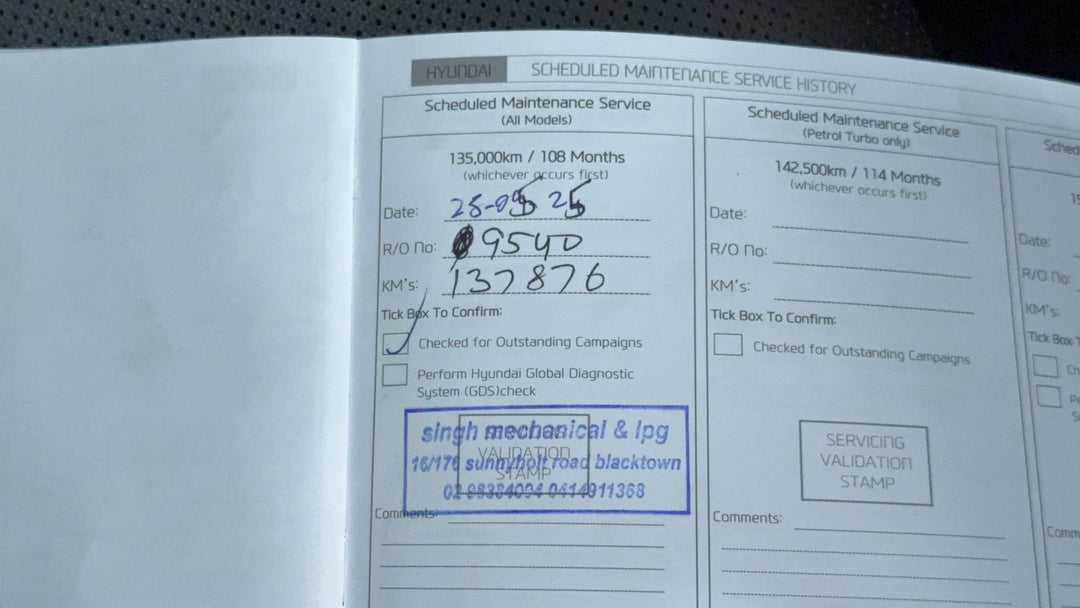 HYUNDAI SCHEDULED MAINTENANCE SERVICE HISTORY
Scheduled Maintenance Service
(All Models)
135,000km / 108 Months
(whichever occurs first)
Date: 25
R/O No: 9540
KM's: 137876
Tick Box To Confirm:
Checked for Outstanding Campaigns
Perform Hyundai Global Diagnostic
System (GDS)check
singh mechanical & lpg
VALIDATION
16/176 sunnyholt road blacktown
STAMP
0414911368
Comments:
Scheduled Maintenance Service
(Petrol Turbo only)
142,500km / 114 Months
(whichever occurs first)
Date:
R/O No:
KM's:
Tick Box To Confirm:
Checked for Outstanding Campaigns
SERVICING
VALIDATION
STAMP
Comments:
Sched
15
Date:
R/O No:
KM's:
Tick Box T
Ch
Comm